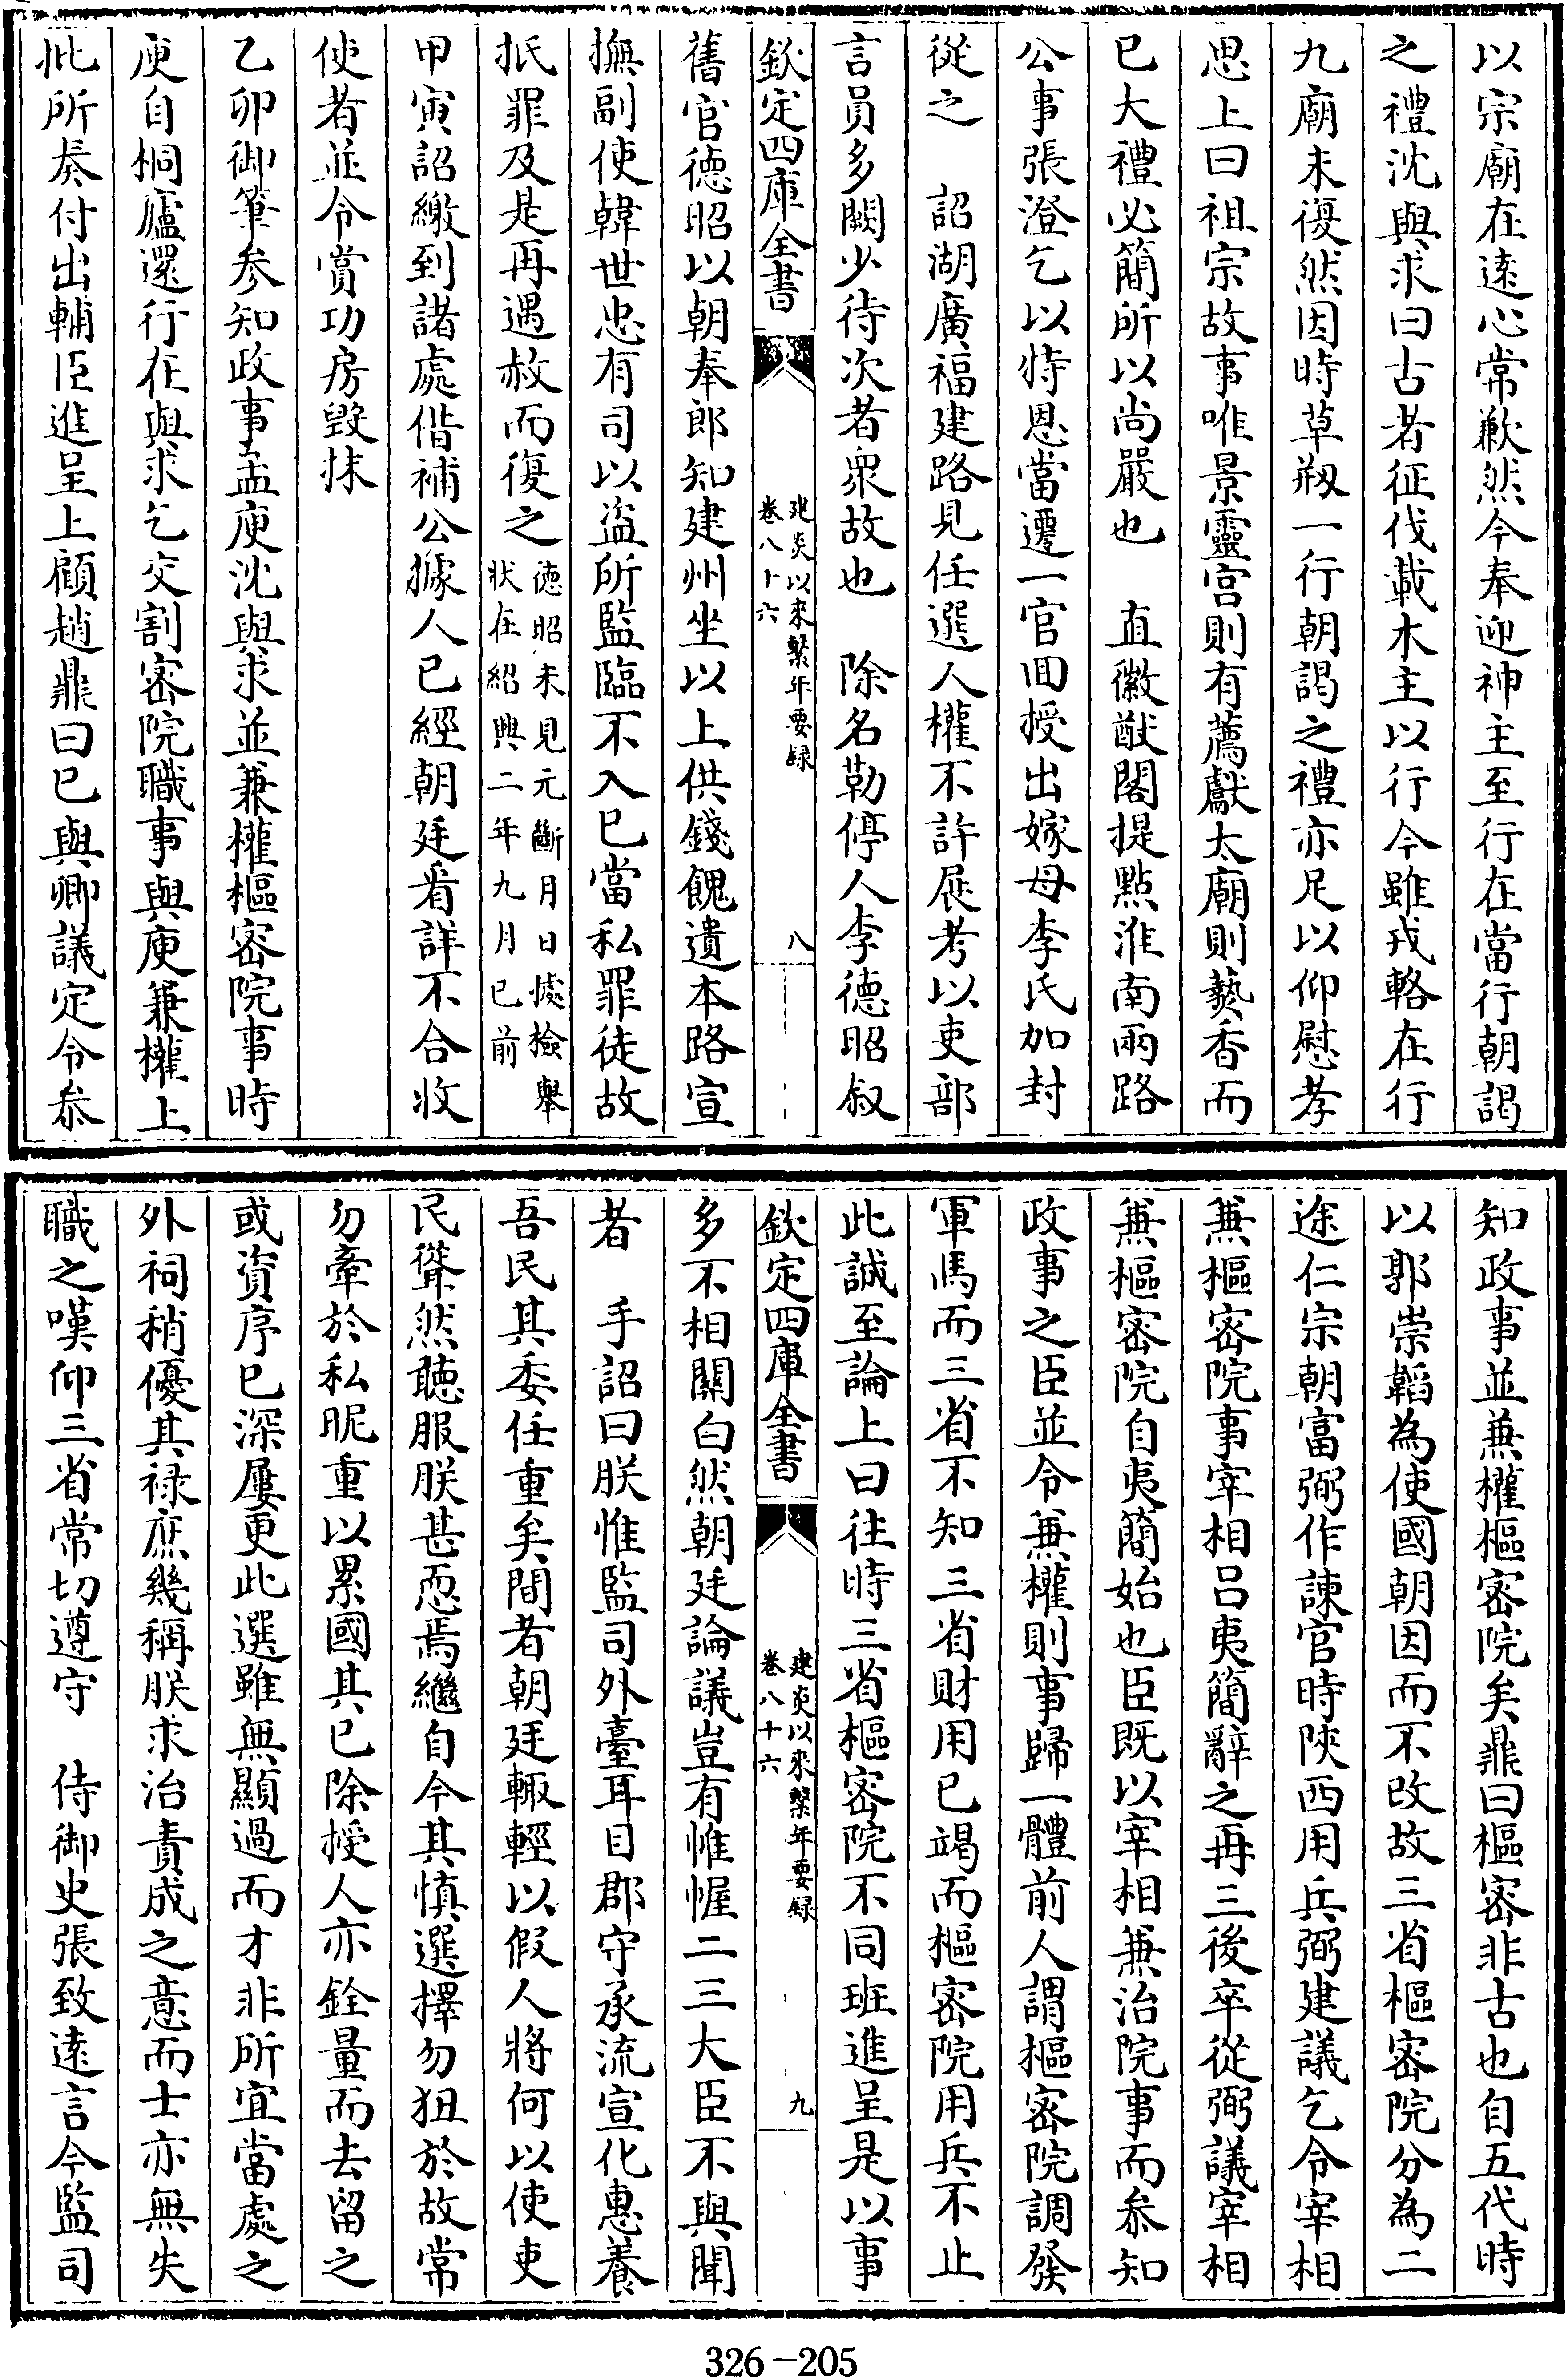 以宗廟在逺心常歉然今奉迎神主至行在當行朝謁
之禮沈與求曰古者征伐載木主以行今雖戎輅在行
九廟未復然因時草剏一行朝謁之禮亦足以仰慰孝
思上曰祖宗故事唯景靈宫則有薦獻太廟則爇香而
已大禮必簡所以尚嚴也　直徽猷閣提點淮南兩路
公事張澄乞以特恩當遷一官回授出嫁母李氏加封
從之　詔湖廣福建路見任選人權不許展考以吏部
言員多闕少待次者衆故也　除名勒停人李德昭叙
欽定四庫全書
建炎以來繫年要録
卷八十六
八
舊官德昭以朝奉郎知建州坐以上供錢餽遺本路宣
撫副使韓世忠有司以盗所監臨不入已當私罪徒故
抵罪及是再遇赦而復之
德昭未見元斷月日據檢舉
狀在紹興二年九月已前
甲寅詔繳到諸處借補公據人已經朝廷看詳不合收
使者並令賞功房毀抹
乙卯御筆參知政事孟庾沈與求並兼權樞密院事時
庾自桐廬還行在與求乞交割密院職事與庾兼權上
批所奏付出輔臣進呈上顧趙鼎曰已與卿議定令叅
知政事並兼權樞密院矣鼎曰樞密非古也自五代時
以郭崇韜為使國朝因而不改故三省樞密院分為二
途仁宗朝富弼作諫官時陜西用兵弼建議乞令宰相
兼樞密院事宰相吕夷簡辭之再三後卒從弼議宰相
兼樞密院自夷簡始也臣既以宰相兼治院事而叅知
政事之臣並令兼權則事歸一體前人謂樞密院調發
軍馬而三省不知三省財用已竭而樞密院用兵不止
此誠至論上曰往時三省樞密院不同班進呈是以事
欽定四庫全書
建炎以來繫年要録
卷八十六
九
多不相關白然朝廷論議豈有惟幄二三大臣不與聞
者　手詔曰朕惟監司外臺耳目郡守承流宣化惠養
吾民其委任重矣間者朝廷輙輕以假人將何以使吏
民聳然聽服朕甚恧焉繼自今其慎選擇勿狃於故常
勿牽於私昵重以累國其已除授人亦銓量而去留之
或資序已深屢更此選雖無顯過而才非所宜當處之
外祠稍優其禄庶幾稱朕求治責成之意而士亦無失
職之嘆仰三省常切遵守　侍御史張致逺言今監司
326-205